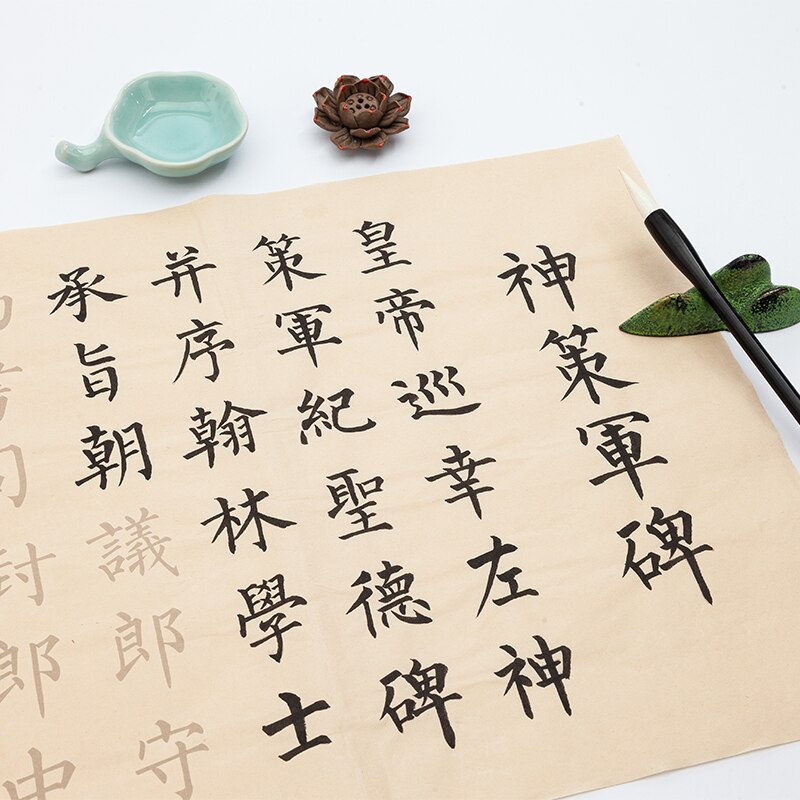 神策軍碑
皇帝巡幸左神
策軍紀聖德碑
并序翰林學士
承旨朝議郎守
封郎中